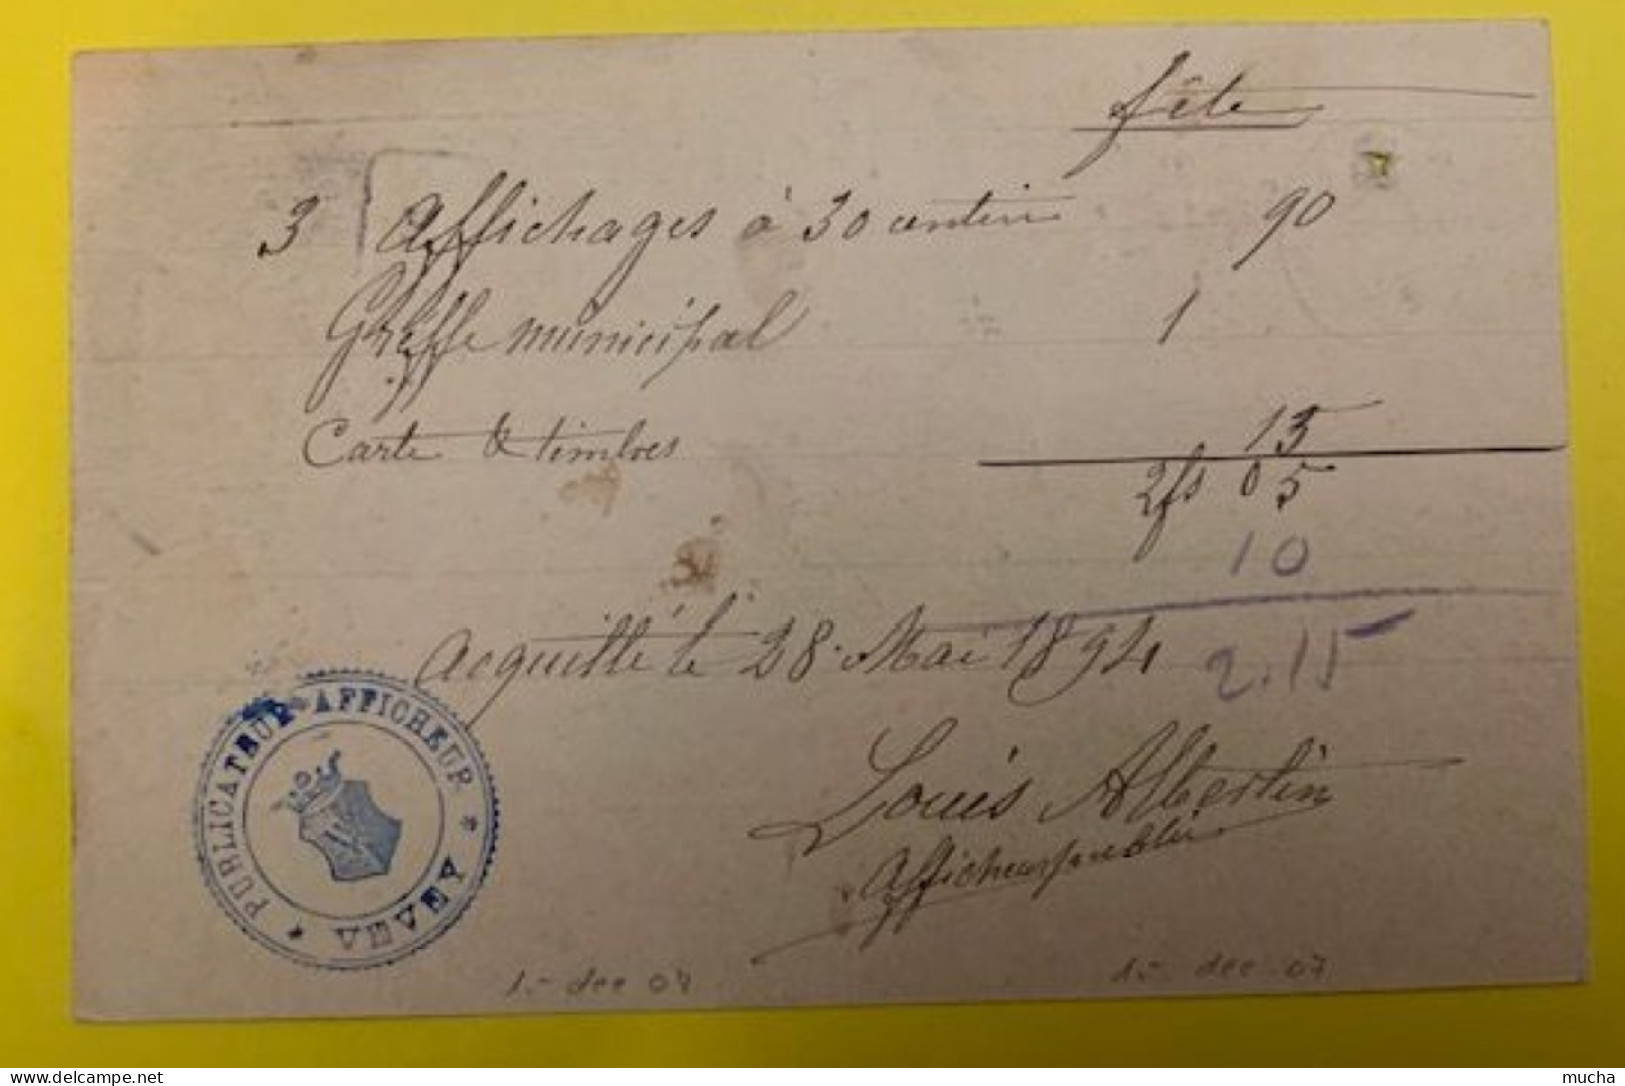 fête
3 Affichages à 30 centim 90
Greffe municipal 1
Carte & timbres 15
2fs 05
10
Acquitté le 28 Mai 1894
2.15
PUBLICATEUR-AFFICHEUR
* VEVEY *
Louis Albertin
Afficheur public
1.- dec 07
1.- dec 07
https://www.delcampe.net
mucha